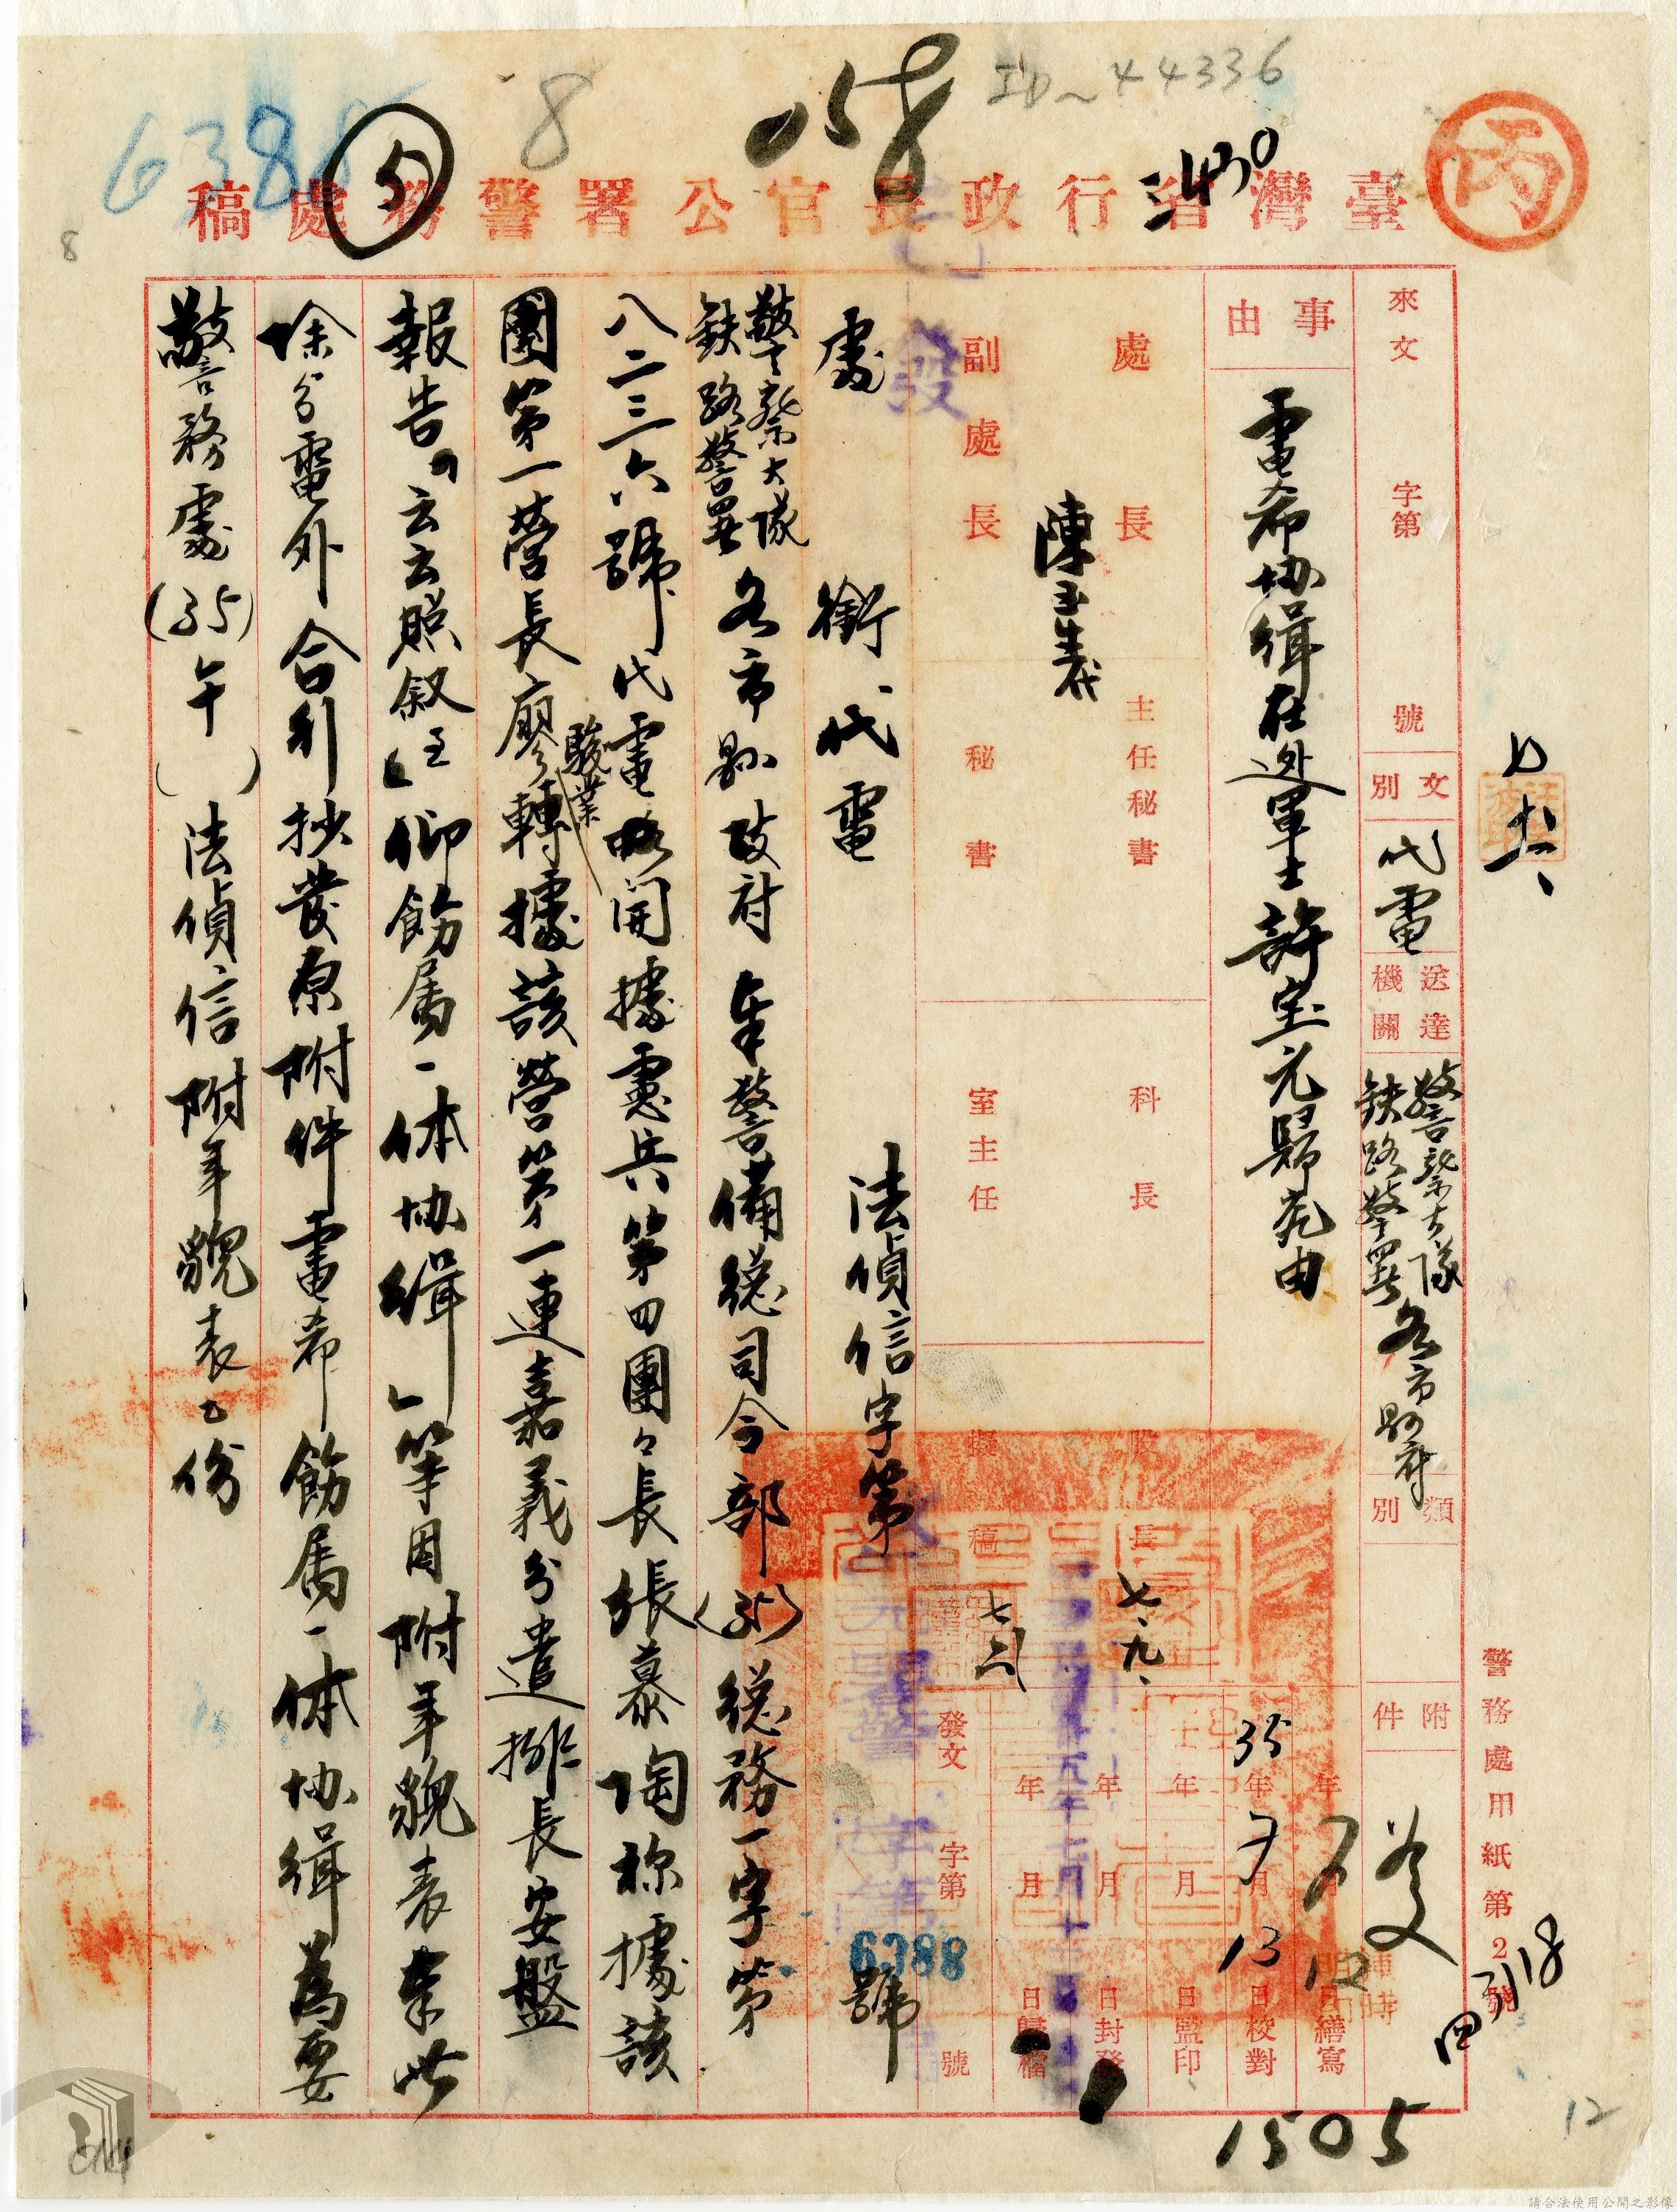 ID~44336
8
6388
3430
丙
臺灣省行政長官公署警務處稿
8
來文 字第 號
文別 代電
送達機關 警察大隊 鉄路警署 各市縣政府
類別
附件
事由 電希協緝在逃軍士許宝元歸案由
處長
副處長
陳玉生代
主任秘書
秘書
科長
室主任
股長
擬稿
七、九、
年 月 日繕寫
35年7月13日校對
年 月 日監印
年 月 日封發
年 月 日歸檔
發文 字第 號
6388
處銜代電 法偵信字第 號
警察大隊 鉄路警署 各市縣政府 奉警備總司令部(35)總務一字第
八二三六號代電略開據憲兵第四團々長張慕陶称據該
團第一營長廖駿業轉據該營第一連嘉義分遣排長安盤
報告「云云照叙至」仰飭属一体協緝」等因附年貌表奉此
除分電外合行抄發原附件電希飭属一体協緝為要
警務處(35)午( )法偵信附年貌表乙份
警務處用紙第2號
1505
12
請合法使用公開之影像